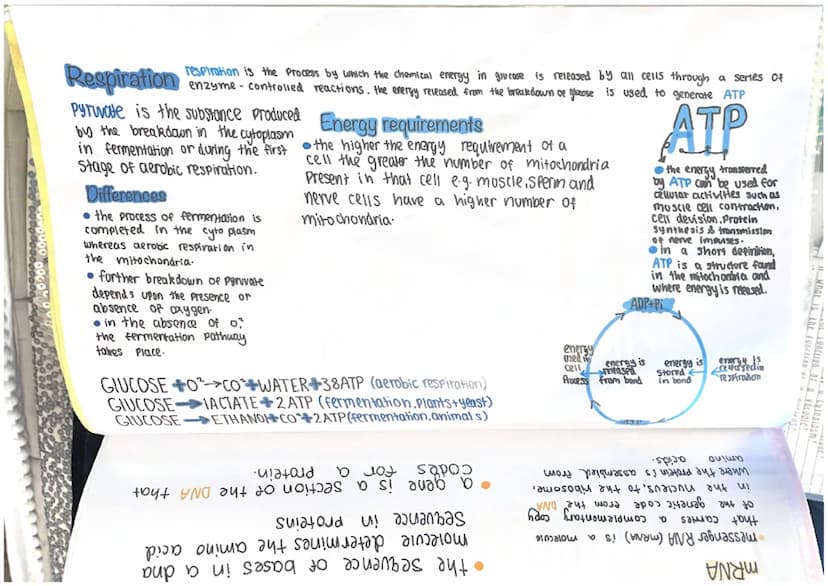 Respiration
respiration is the process by which the chemical energy in glucose is released by all cells through a series of
enzyme - controlled reactions. the energy released from the breakdown of glucose is used to generate ATP
Pyruvate is the substance produced
by the breakdown in the cytoplasm
in fermentation or during the first
stage of aerobic respiration.
Differences
• the process of fermentation is
completed in the cytoplasm
whereas aerobic respiration in
the mitochondria.
• further breakdown of pyruvate
depends upon the presence or
absence of oxygen.
• in the absence of O²
the fermentation pathway
takes place.
Energy requirements
• the higher the energy requirement of a
cell the greater the number of mitochondria
present in that cell e.g. muscle, sperm and
nerve cells have a higher number of
mitochondria.
ATP
• the energy transferred
by ATP can be used for
cellular activities such as
muscle cell contraction,
cell devision, Protein
synthesis & transmission
of nerve impulses.
• in a short definition,
ATP is a structure found
in the mitochondria and
where energy is released.
ADP+Pi
energy
used in
cell
process
energy is
released
from bond
energy is
stored
in bond
energy is
released in
respiration
GLUCOSE + O²→CO²+WATER+38ATP (aerobic respiration)
GLUCOSE → LACTATE + 2ATP (fermentation, plants+yeast)
GLUCOSE → ETHANOL+CO²+2ATP (fermentation, animals)
mRNA
• messenger RNA (mRNA) is a molecule
that carries a complementary copy
of the genetic code from the DNA
in the nucleus, to the ribosome,
where the protein is assembled from
amino acids.
• the sequence of bases in a dna
molecule determines the amino acid
sequence in proteins
• a gene is a section of the DNA that
codes for a protein.